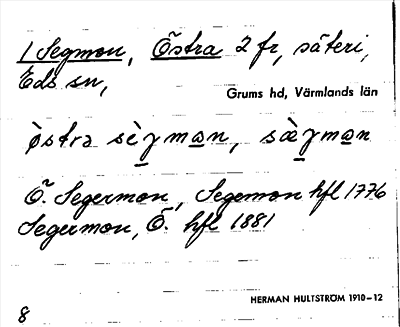 1 Segmon, Östra 2 fr, säteri,
Eds sn,
Grums hd, Värmlands län
òstra sèγman, sæ̀γman
Ö. Segermon, Segemon hfl 1776
Segermon, Ö. hfl 1881
HERMAN HULTSTRÖM 1910–12
8